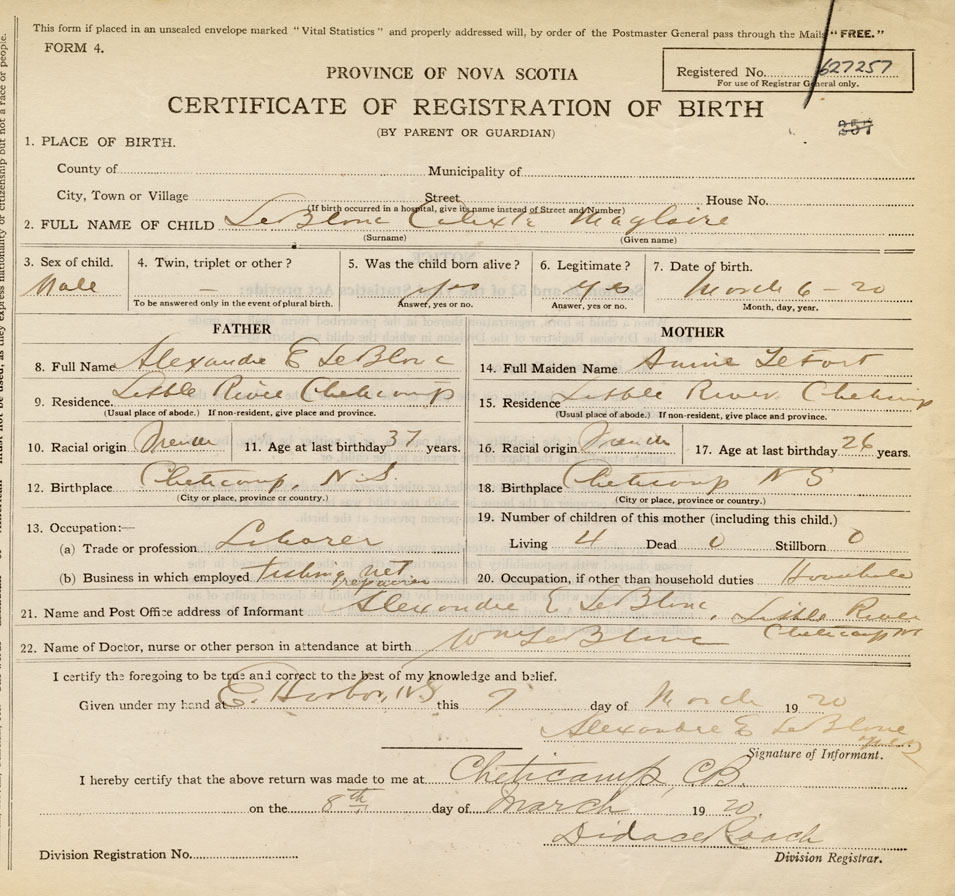 This form if placed in an unsealed envelope marked "Vital Statistics" and properly addressed will, by order of the Postmaster General pass through the Mails "FREE."
FORM 4.
Registered No. 627257
For use of Registrar General only.
PROVINCE OF NOVA SCOTIA
CERTIFICATE OF REGISTRATION OF BIRTH
(BY PARENT OR GUARDIAN)
357
1. PLACE OF BIRTH.
County of Municipality of
City, Town or Village Street House No.
(If birth occurred in a hospital, give its name instead of Street and Number)
2. FULL NAME OF CHILD LeBlanc Calixte Magloire
(Surname) (Given name)
3. Sex of child. 4. Twin, triplet or other? 5. Was the child born alive? 6. Legitimate? 7. Date of birth.
Male — yes yes March 6 - 20
To be answered only in the event of plural birth. Answer, yes or no. Answer, yes or no. Month, day, year.
FATHER MOTHER
8. Full Name Alexandre E LeBlanc 14. Full Maiden Name Annie LeFort
9. Residence. Little River Cheticamp 15. Residence Little River Cheticamp
(Usual place of abode.) If non-resident, give place and province. (Usual place of abode.) If non-resident, give place and province.
10. Racial origin French 11. Age at last birthday 37 years. 16. Racial origin French 17. Age at last birthday 26 years.
12. Birthplace Cheticamp, N.S. 18. Birthplace Cheticamp N S
(City or place, province or country.) (City or place, province or country.)
13. Occupation:— 19. Number of children of this mother (including this child.)
(a) Trade or profession Laborer Living 4 Dead 0 Stillborn 0
(b) Business in which employed fishing net 20. Occupation, if other than household duties Household
21. Name and Post Office address of Informant Alexandre E LeBlanc, Little River
Cheticamp NS
22. Name of Doctor, nurse or other person in attendance at birth Wm LeBlanc
I certify the foregoing to be true and correct to the best of my knowledge and belief.
Given under my hand at E. Harbor, N.S this 7 day of March 1920
Alexandre E LeBlanc
Signature of Informant.
I hereby certify that the above return was made to me at Cheticamp, C.B.
on the 8th day of March 1920
Didace Roach
Division Registrar.
Division Registration No.